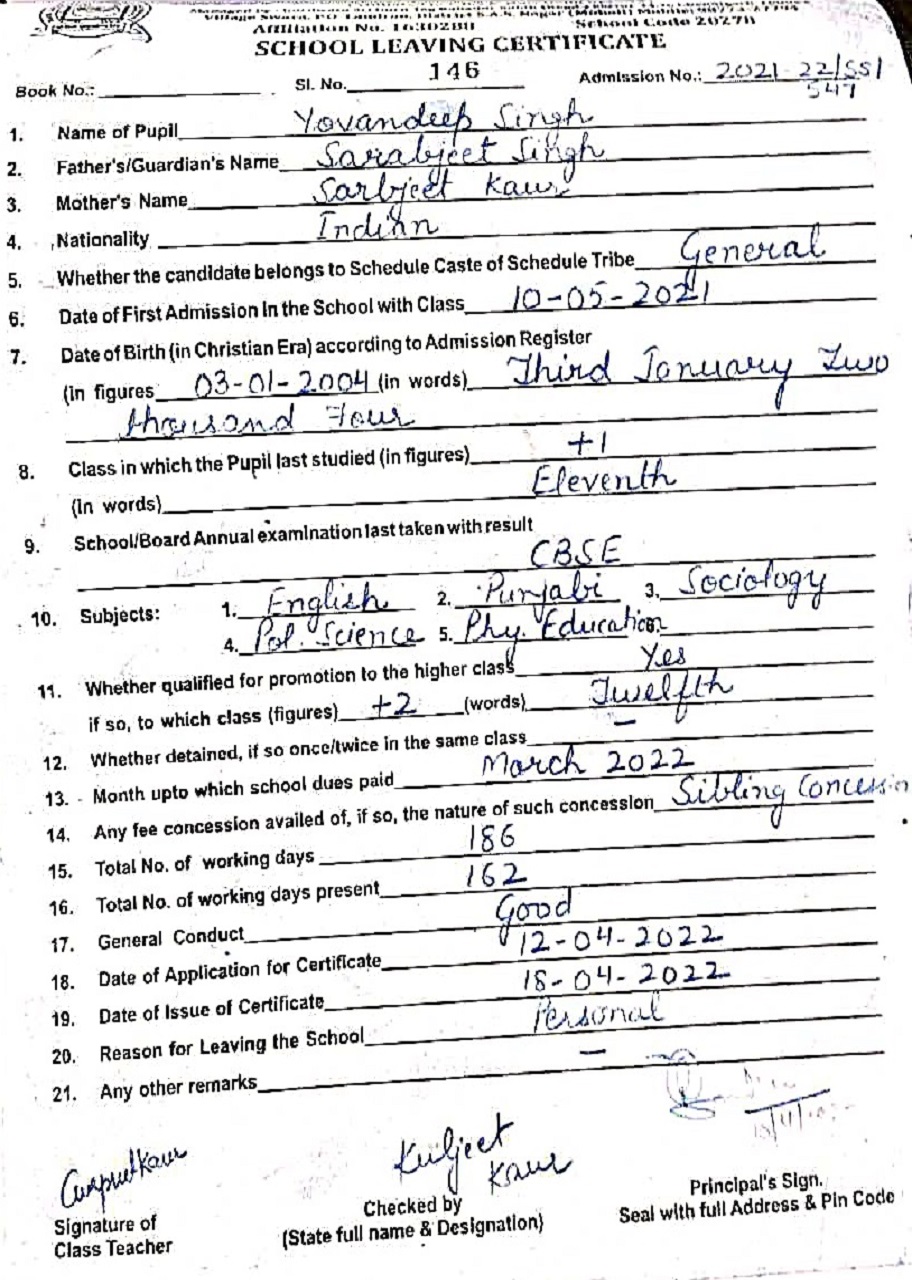 Affiliation No. 1630280 School Code 20270
SCHOOL LEAVING CERTIFICATE
Book No.: Sl. No. 146 Admission No.: 2021-22/SS/
547
1. Name of Pupil Yovandeep Singh
2. Father's/Guardian's Name Sarabjeet Singh
3. Mother's Name Sarbjeet Kaur
4. Nationality Indian
5. Whether the candidate belongs to Schedule Caste of Schedule Tribe General
6. Date of First Admission In the School with Class 10-05-2021
7. Date of Birth (in Christian Era) according to Admission Register
(in figures 03-01-2004 (in words) Third January Two
thousand Four
8. Class in which the Pupil last studied (in figures) +1
(In words) Eleventh
9. School/Board Annual examination last taken with result
CBSE
10. Subjects: 1. English 2. Punjabi 3. Sociology
4. Pol. Science 5. Phy. Education 6.
11. Whether qualified for promotion to the higher class Yes
if so, to which class (figures) +2 (words) Twelfth
12. Whether detained, if so once/twice in the same class –
13. Month upto which school dues paid March 2022
14. Any fee concession availed of, if so, the nature of such concession Sibling Concession
15. Total No. of working days 186
16. Total No. of working days present 162
17. General Conduct Good
18. Date of Application for Certificate 12-04-2022
19. Date of Issue of Certificate 18-04-2022
20. Reason for Leaving the School Personal
21. Any other remarks –
Kuljeet
Kaur
Signature of
Class Teacher
Checked by
(State full name & Designation)
Principal's Sign.
Seal with full Address & Pin Code